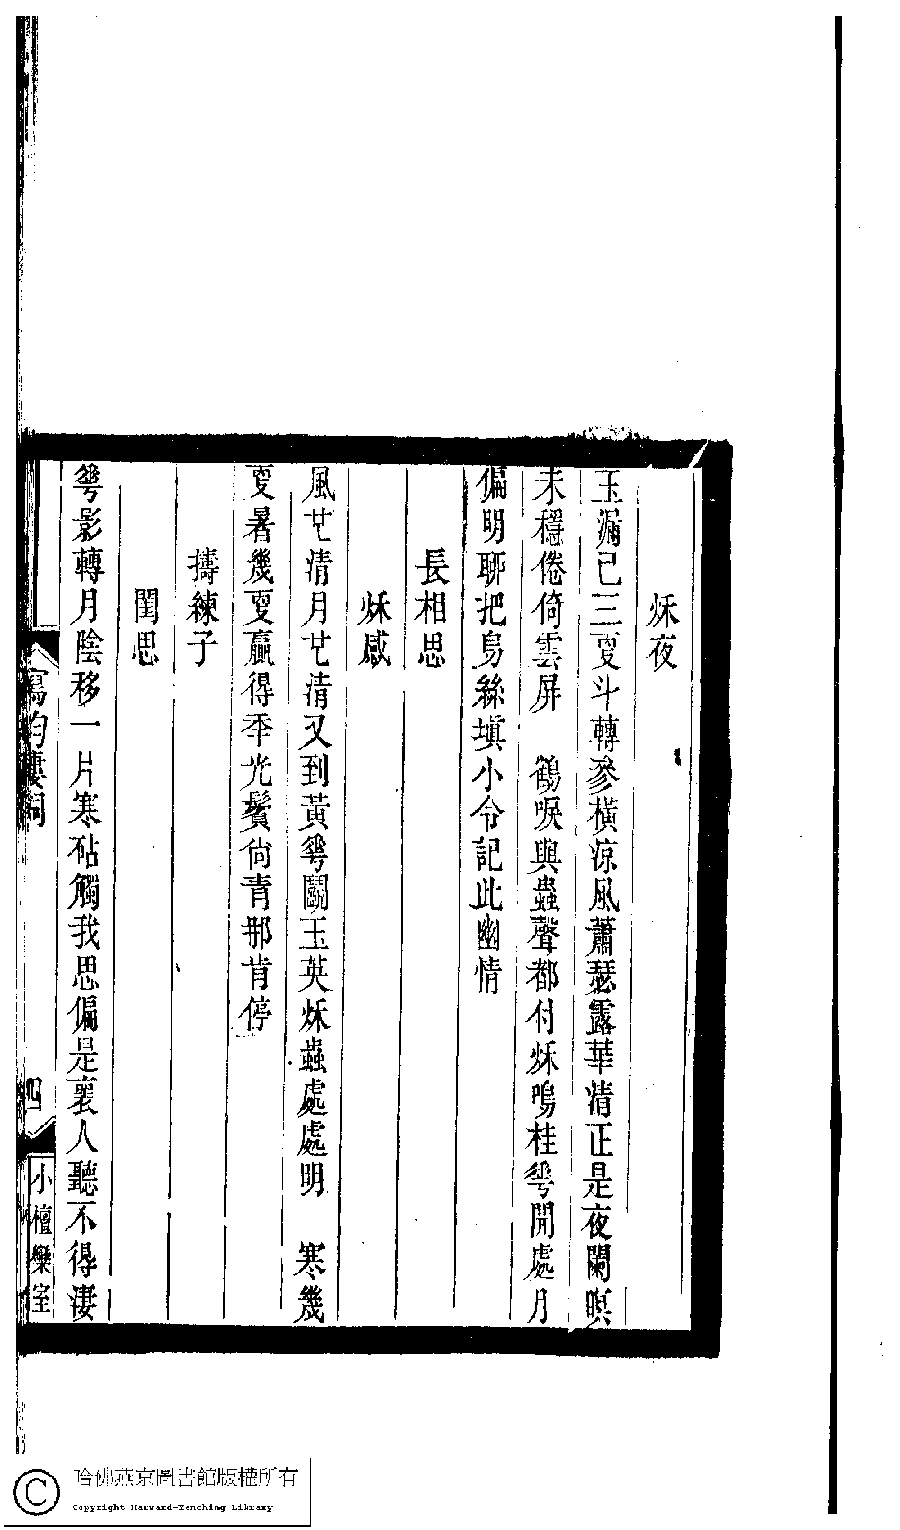 秌夜
玉漏已三更斗轉參橫涼風蕭瑟露華清正是夜闌暝
未穩倦倚雲屏　鶴唳與蟲聲都付秌鳴桂芲開處月
偏明聊把烏絲塡小令記此幽情
長相思
秌感
風尐清月尐清又到黃芲鬭玉英秌蟲處處鳴　寒幾
更暑幾更贏得秊光鬢尙青那肯停
擣練子
閨思
芲影轉月陰移一片寒砧觸我思偏是裏人聽不得淒
寫韵樓詞
四
小檀欒室
哈佛燕京圖書館版權所有
Copyright Harvard-Yenching Library